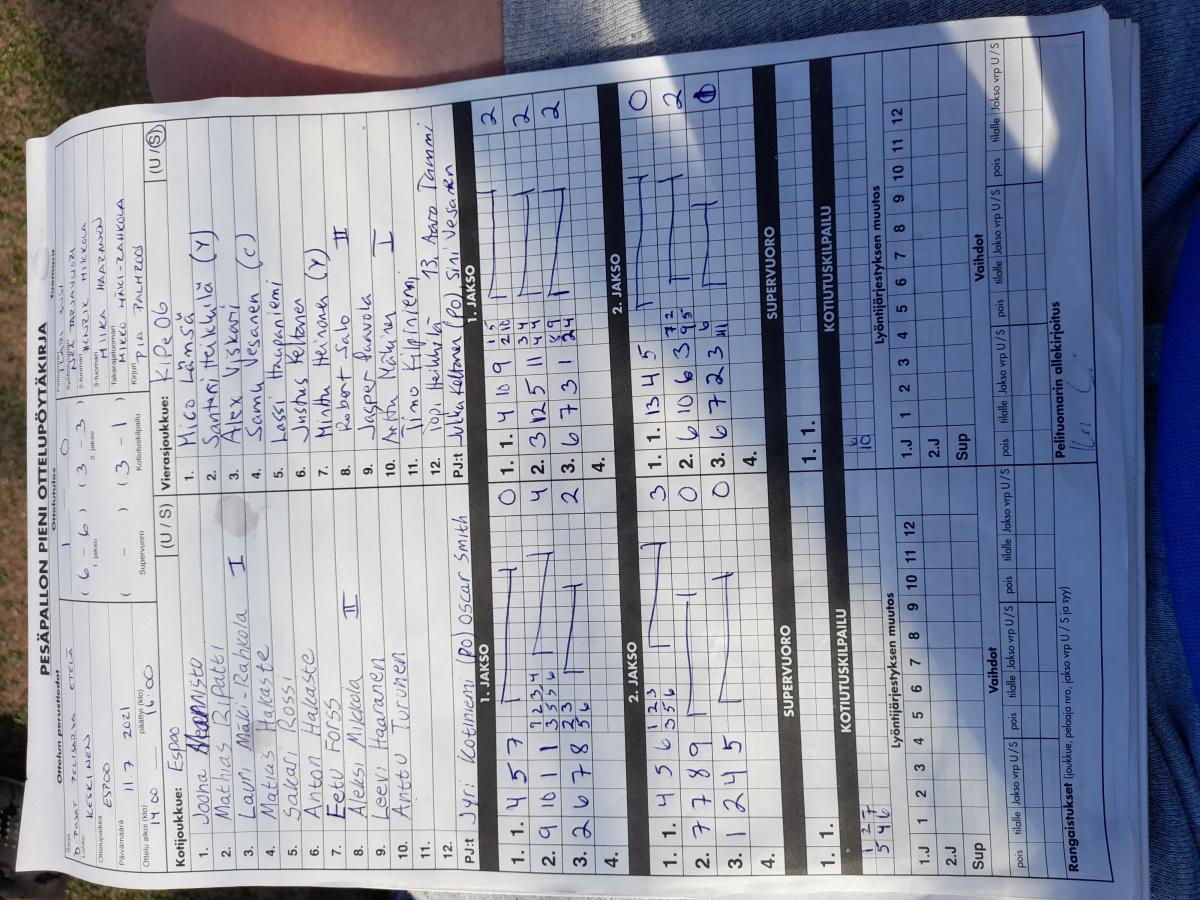 PESÄPALLON PIENI OTTELUPÖYTÄKIRJA
Ottelun perustiedot Ottelutulos Tuomarit
Sarja
D-POJAT ETELÄ 1 0
Lohko 2-tuomari
KESKINEN ( 6 - 6 ) ( 3 - 3 ) HENRIK MIKKOLA
1. jakso 2. jakso 3-tuomari
Ottelupaikka MIIKA HAARANEN
ESPOO Takarajatuomari
Päivämäärä ( - ) ( 3 - 1 ) MIKKO MÄKI-RAHKOLA
11 7 2021 Supervuoro Kotiutuskilpailu Kirjuri
Ottelu alkoi (klo) päättyi (klo) PIA PALMROOS
14:00 16:00
Kotijoukkue: Espoo (U / S)
1. Joona
2. Mathias Ripatti
3. Lauri Mäki-Rahkola I
4. Mathias Hakaste
5. Sakari Rossi
6. Anton Hakaste
7. Eetu Forss
8. Aleksi Mikkola II
9. Leevi Haaranen
10. Anttu Turunen
11.
12.
PJ:t Jyri Kotiniemi (PO) Oscar Smith
Vierasjoukkue: KiPe 06 (U / S)
1. Mico Lämsä
2. Santeri Heikkilä (Y)
3. Alex Viskari
4. Samu Vesanen (C)
5. Lassi Haapaniemi
6. Justus Keltanen
7. Minttu Heinonen (Y)
8. Robert Salo II
9. Jasper Paavola
10. Anttu Närhinen I
11. Timo Kilpiniemi
12. Topi Heikkilä 13. Aaro Tammi
PJ:t Jukka Keltanen (PO) Sini Vesanen
1. JAKSO 1. JAKSO
1. 1. 4 5 7 0 1. 1. 4 10 9 2
2. 9 10 1 1 4 2. 3 12 5 11 2
3. 2 6 7 8 2 3. 6 7 3 1 2
4. 4.
2. JAKSO 2. JAKSO
1. 1. 4 5 6 3 1. 1. 13 4 5 0
2. 7 7 8 9 0 2. 6 10 6 3 2
3. 1 2 4 5 0 3. 6 7 2 3
4. 4.
SUPERVUORO SUPERVUORO
1. 1. 1. 1.
KOTIUTUSKILPAILU KOTIUTUSKILPAILU
1 2 7 6
5 4 6 10
Lyöntijärjestyksen muutos Lyöntijärjestyksen muutos
1.J 1 2 3 4 5 6 7 8 9 10 11 12 1.J 1 2 3 4 5 6 7 8 9 10 11 12
2.J 2.J
Sup Sup
Vaihdot Vaihdot
pois tilalle Jakso vrp U / S pois tilalle Jakso vrp U / S pois tilalle Jakso vrp U / S pois tilalle Jakso vrp U / S pois tilalle Jakso vrp U / S pois tilalle Jakso vrp U / S
Rangaistukset (joukkue, pelaaja nro, jakso vrp U / S ja syy) Pelituomarin allekirjoitus